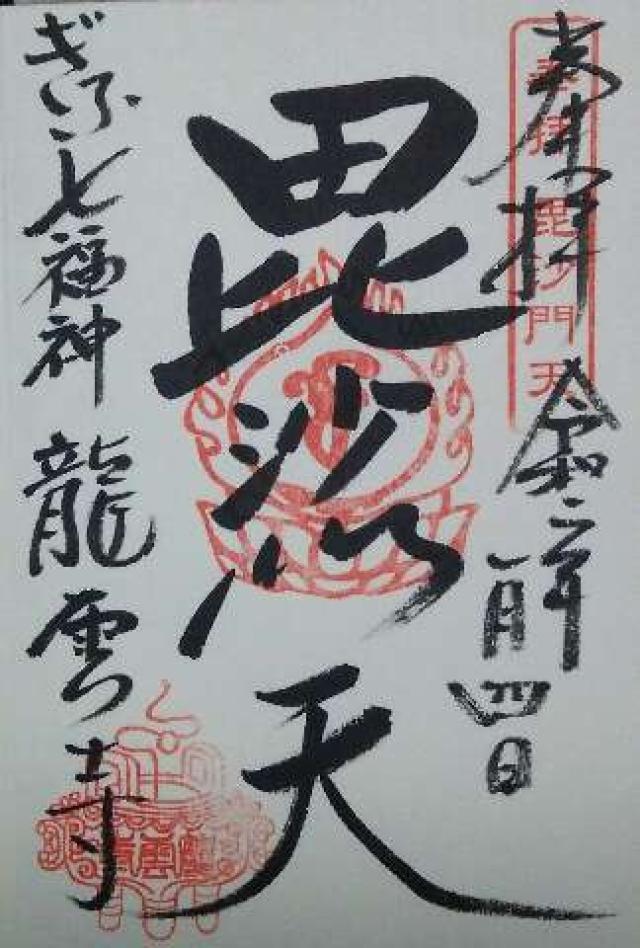 奉拝 令和二年
一月四日
奉拝 毘沙門天
毘沙門天
ぎふ七福神 龍雲寺